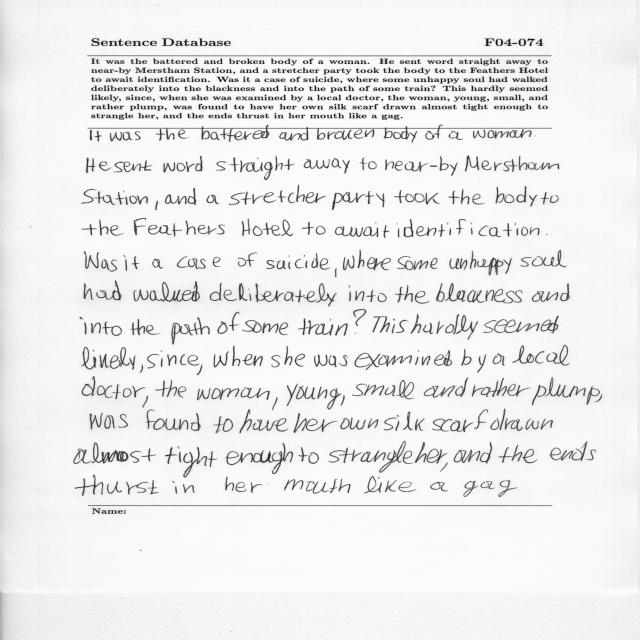 Sentence Database F04-074
It was the battered and broken body of a woman. He sent word straight away to
near-by Merstham Station, and a stretcher party took the body to the Feathers Hotel
to await identification. Was it a case of suicide, where some unhappy soul had walked
deliberately into the blackness and into the path of some train? This hardly seemed
likely, since, when she was examined by a local doctor, the woman, young, small, and
rather plump, was found to have her own silk scarf drawn almost tight enough to
strangle her, and the ends thrust in her mouth like a gag.
It was the battered and broken body of a woman.
He sent word straight away to near-by Merstham
Station, and a stretcher party took the body to
the Feathers Hotel to await identification.
Was it a case of suicide, where some unhappy soul
had walked deliberately into the blackness and
into the path of some train? This hardly seemed
likely, since, when she was examined by a local
doctor, the woman, young, small and rather plump,
was found to have her own silk scarf drawn
almost tight enough to strangle her, and the ends
thurst in her mouth like a gag
Name: